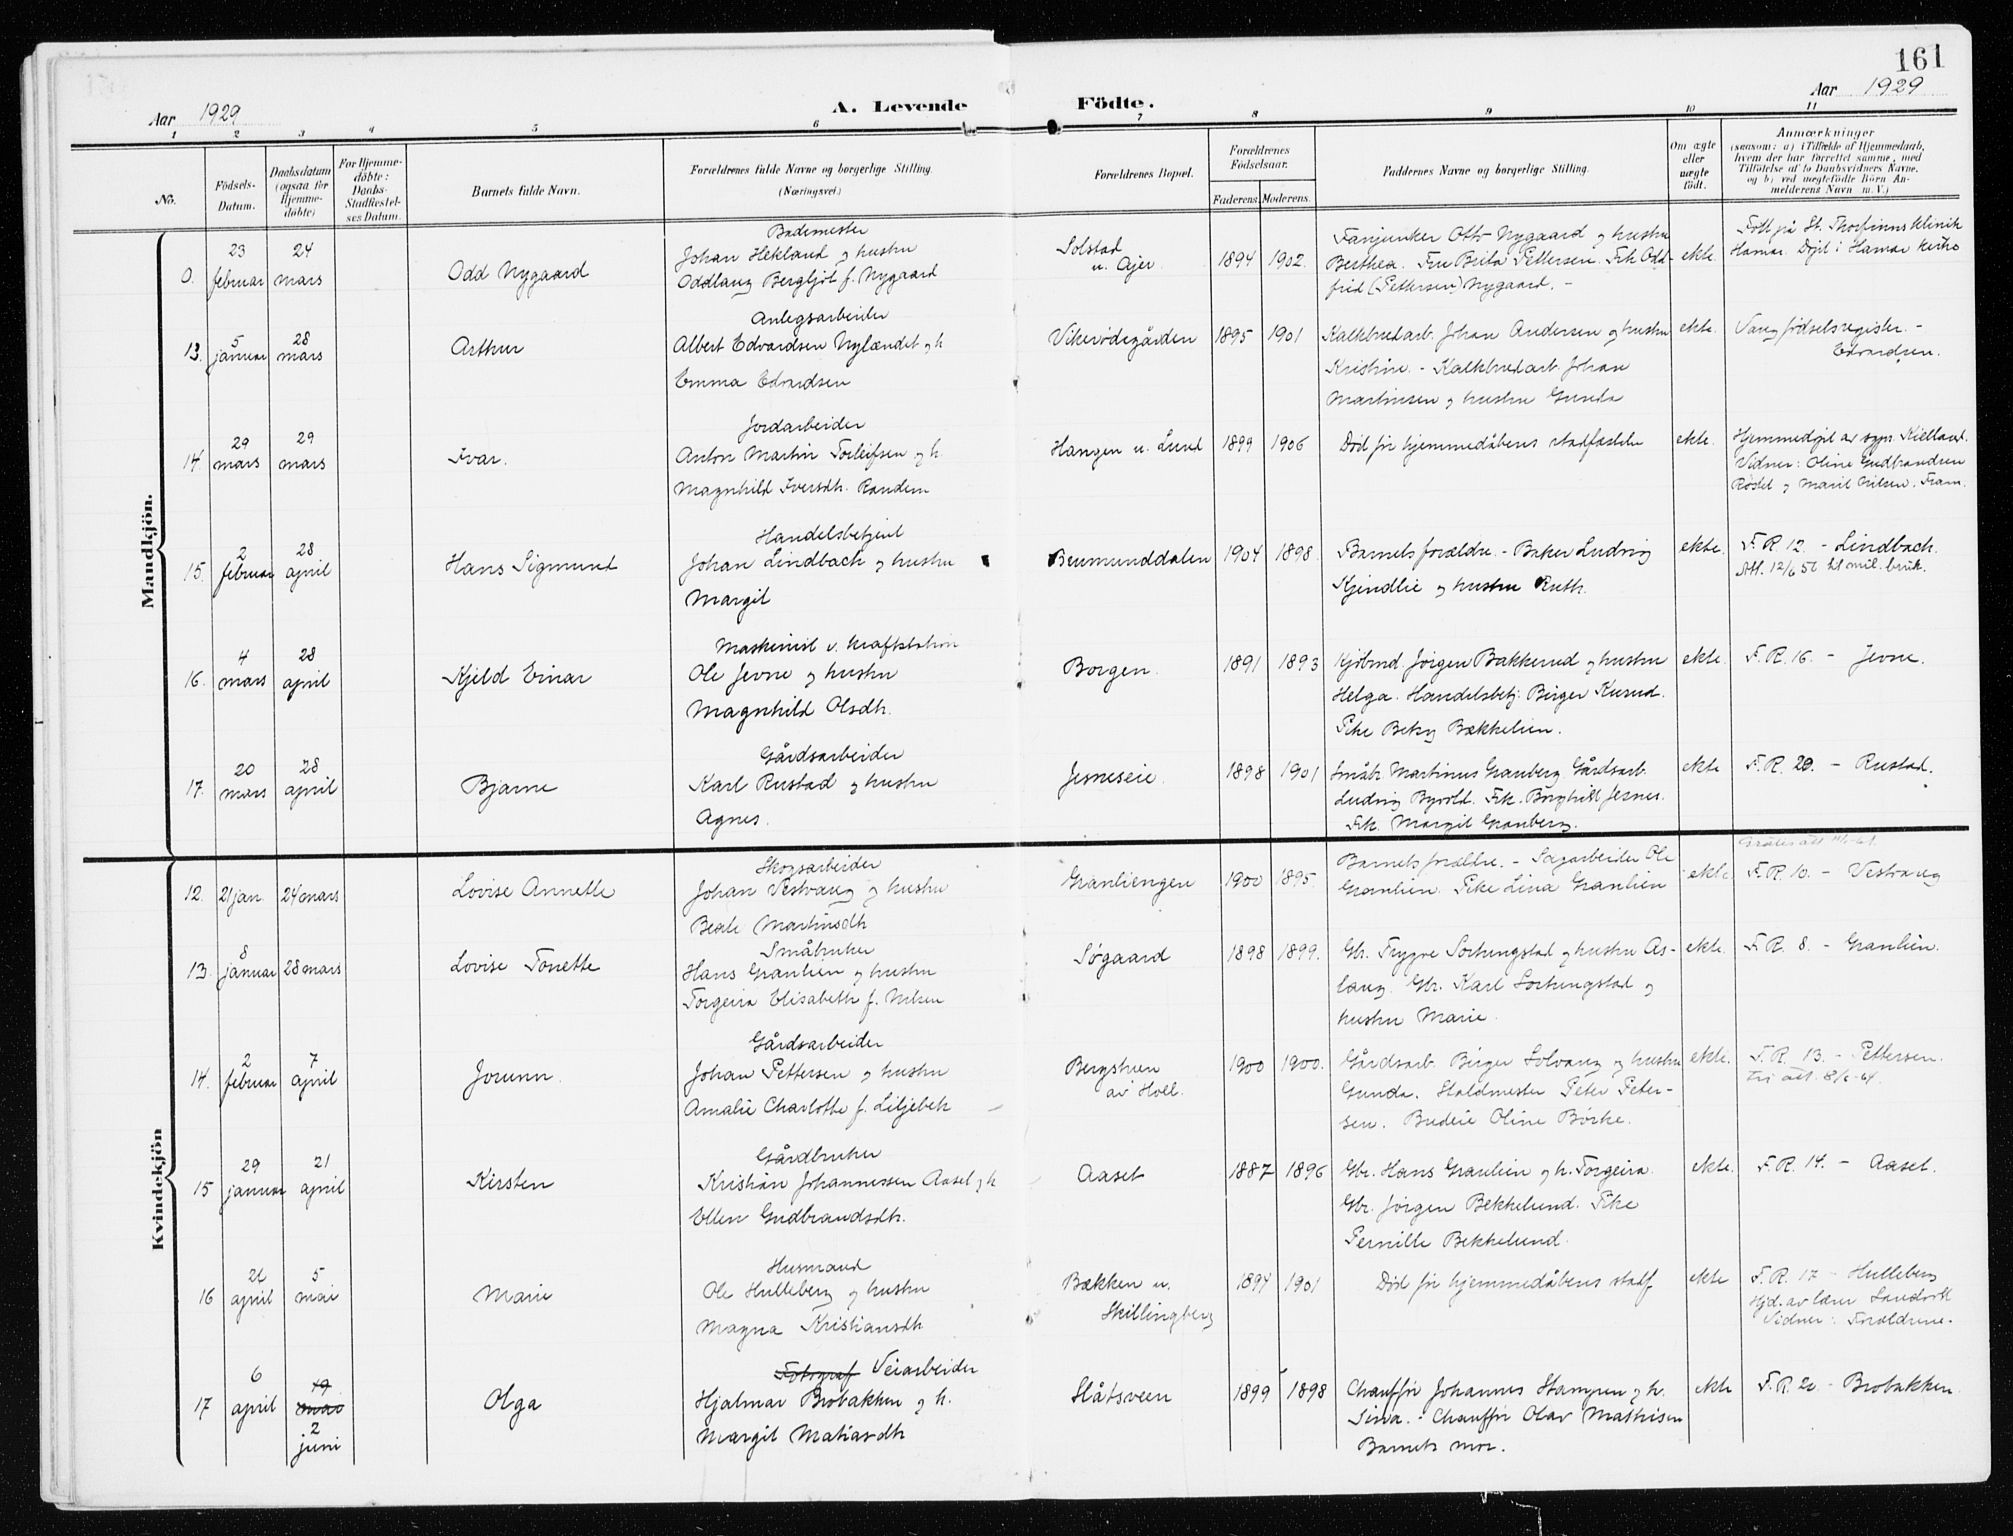 161
Aar 1929
A. Levende
Födte.
Aar 1929
1 2 3 4 5 6 7 8 9 10 11
No.
Födsels-
Datum.
Daabsdatum
(ogsaa for
Hjemme-
döbte)
For Hjemme-
döbte:
Daabs-
Stadfæstel-
ses Datum.
Barnets fulde Navn.
Forældrenes fulde Navne og borgerlige Stilling
(Næringsvei)
Forældrenes Bopæl.
Forældrenes
Födselsaar.
Faderens.
Moderens.
Faddernes Navne og borgerlige Stilling.
Om ægte
eller
uægte
födt.
Anmærkninger
(saasom: a) i Tilfælde af Hjemmedaab,
hvem der har forrettet samme, med
Tilföielse af to Daabsvidners Navne.
og b) ved uægtefödte Börn An-
melderens Navn m. V.)
Mandkjön.
0.
23
februar
24
mars
Odd Nygaard
Bademester
Johan Hekland og hustru
Oddlaug Bergljot f. Nygaard
Solstad
u. Ajer
1894
1902.
Fanjunker Otto Nygaard og hustru
Berthea. Fru Brita Pettersen. Frk. Odd-
frid (Pettersen) Nygaard. -
ekte.
Født på St. Thorfinns klinik
Hamar. Døpt i Hamar kirke
13.
5
januar
28
mars
Arthur
Anlegsarbeider
Albert Edvardsen Nylændet og h
Emma Edvardsen
Vikerødegården
1895
1901
Kalkbrudarb. Johan Andersen og hustru
Kristine. - Kalkbrudarb. Johan
Martinsen og hustru Gunda
ekte.
Vang fødselsregister. -
Edvardsen.
14.
29
mars
29
mars
Ivar.
Jordarbeider
Anton Martin Torleifsen og h.
Magnhild Iversdtr. Randem
Hangen u. Lund
1899
1906
Død før hjemmedåbens stadfæstelse
ekte.
Hjemmedøpt av sogn. Kielland.
Vidner: Oline Gudbrandsen
Rødel og Marit Nilsen. Fram.
15.
2
februar
28
april
Hans Sigmund
Handelsbetjent
Johan Lindbach og hustru
Margit
Brumunddalen
1904
1898.
Barnets forældre. - Baker Ludvig
Kjendlie og hustru Ruth.
ekte.
F.R. 12. - Lindbach.
Att. 12/6 56 til mil. bruk.
16.
4
mars
28
april
Kjeld Einar
Maskinist v. kraftstation
Ole Jevne og hustru
Magnhild Olsdtr.
Borgen.
1891
1893
Kjøbmd. Jørgen Bakkerud og hustru
Helga. Handelsbetj. Birger Kurud.
Pike Beky Bækkelien.
ekte.
F.R. 16. - Jevne.
17.
20
mars
28
april
Bjarne
Gårdsarbeider
Karl Rustad og hustru
Agnes.
Jesneseie.
1898
1901
Småbr. Martinus Granberg. Gårdsarb.
Ludvig Byvold. Frk. Borghild Jesnes.
Frk. Margit Granberg.
ekte
F.R. 29. - Rustad.
Kvindekjön
12.
21 jan.
24 mars
Lovise Annette
Skogsarbeider
Johan Vestvang og hustru
Beate Martinsdtr
Granliengen
1900
1895.
Barnets forældre. - Sagarbeider Ole
Granlien. Pike Lina Granlien
ekte
F.R. 10. - Vestvang
13.
8
januar
28 mars
Lovise Tonette
Småbruker
Hans Granlien og hustru
Torgeira Elisabeth f. Nilsen
Søgaard
1898
1899.
Gbr. Trygve Sorknugstad og hustru As-
laug. Gbr. Karl Sorknugstad og
hustru Marie.
ekte.
F.R. 8. - Granlien.
14.
2
februar
7
april
Jorunn.
Gårdsarbeider
Johan Pettersen og hustru
Amalie Charlotte f. Liljebek
Bergstuen
av Hoel.
1900
1900.
Gårdsarb. Birger Solvang og hustru
Gunda. Staldmester Peter Peter-
sen. Budeie Oline Børke.
ekte.
F.R. 13. - Pettersen.
Fri att. 8/6-64.
15
29
januar
21
april
Kirsten
Gårdbruker
Kristian Johannessen Aaset og h
Ellen Gudbrandsdtr.
Aaset
1887
1896
Gbr. Hans Granlien og h. Torgeira.
Gbr. Jørgen Bekkelund. Pike
Pernille Bekkelund.
ekte.
F.R. 14. - Aaset.
16
21
april
5
mai
Marie
Husmand
Ole Hulleberg og hustru
Magna Kristiansdtr
Bækken u.
Skillingberg
1894
1901
Død før hjemmedåbens stadf
ekte
F.R. 17 - Hulleberg
Hjd. av lærer Sandvold
Vidner: Forældrene.
17
6
april
19
mai
2
juni
Olga
Fotograf Veiarbeider
Hjalmar Brobakken og h.
Margit Matiasdtr
Slåtsveen
1899
1898
Chauffør Johannes Stampen og h.
Sina. - Chauffør Olav Mathisen
Barnets mor.
ekte
F.R. 20 - Brobakken.